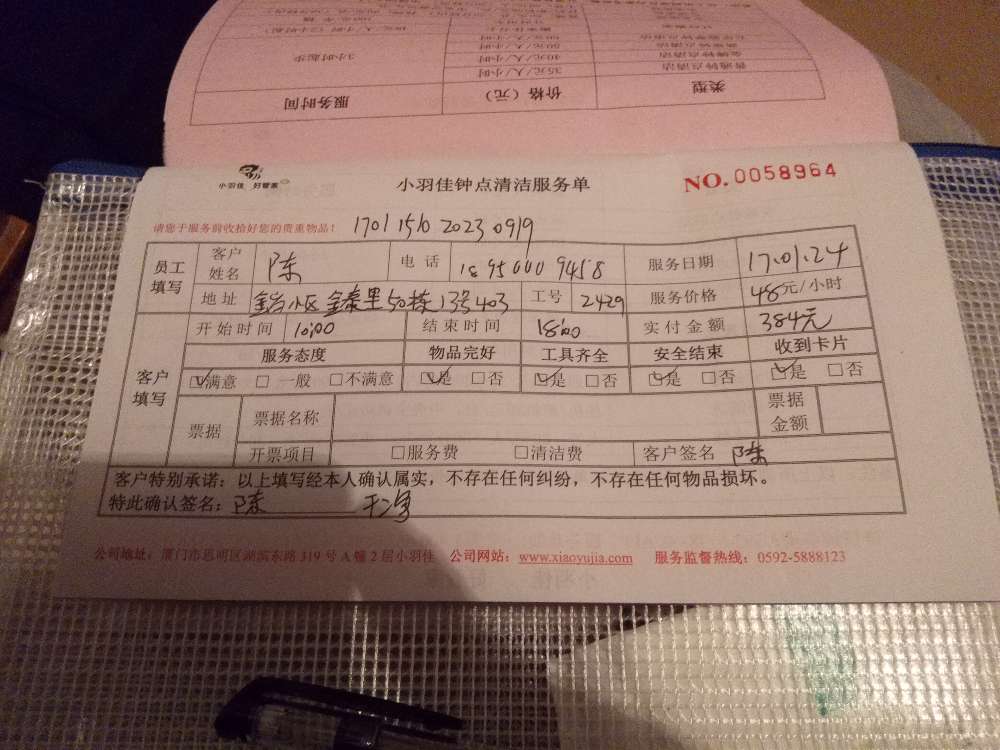 类型 价格（元） 服务时间
普通钟点清洁 35元/人/小时 3小时起步
金牌钟点清洁 40元/人/小时
50元/人/小时
60元/人/小时
小羽佳 好管家
小羽佳钟点清洁服务单
NO.0058964
请您于服务前收拾好您的贵重物品！ 1701 1510 2023 0919
员工填写 客户姓名 陈 电话 服务日期 17.01.24
地址 小区 金泰里50栋13号403 工号 2429 服务价格 48元/小时
客户填写 开始时间 10:00 结束时间 18:00 实付金额 384元
服务态度 物品完好 工具齐全 安全结束 收到卡片
☑满意 □一般 □不满意 ☑是 □否 ☑是 □否 ☑是 □否 ☑是 □否
票据 票据名称 票据金额
开票项目 □服务费 □清洁费 客户签名 陈
客户特别承诺：以上填写经本人确认属实，不存在任何纠纷，不存在任何物品损坏。
特此确认签名：陈 干净
公司地址：厦门市思明区湖滨东路319号A幢2层小羽佳 公司网站：www.xiaoyujia.com 服务监督热线：0592-5888123